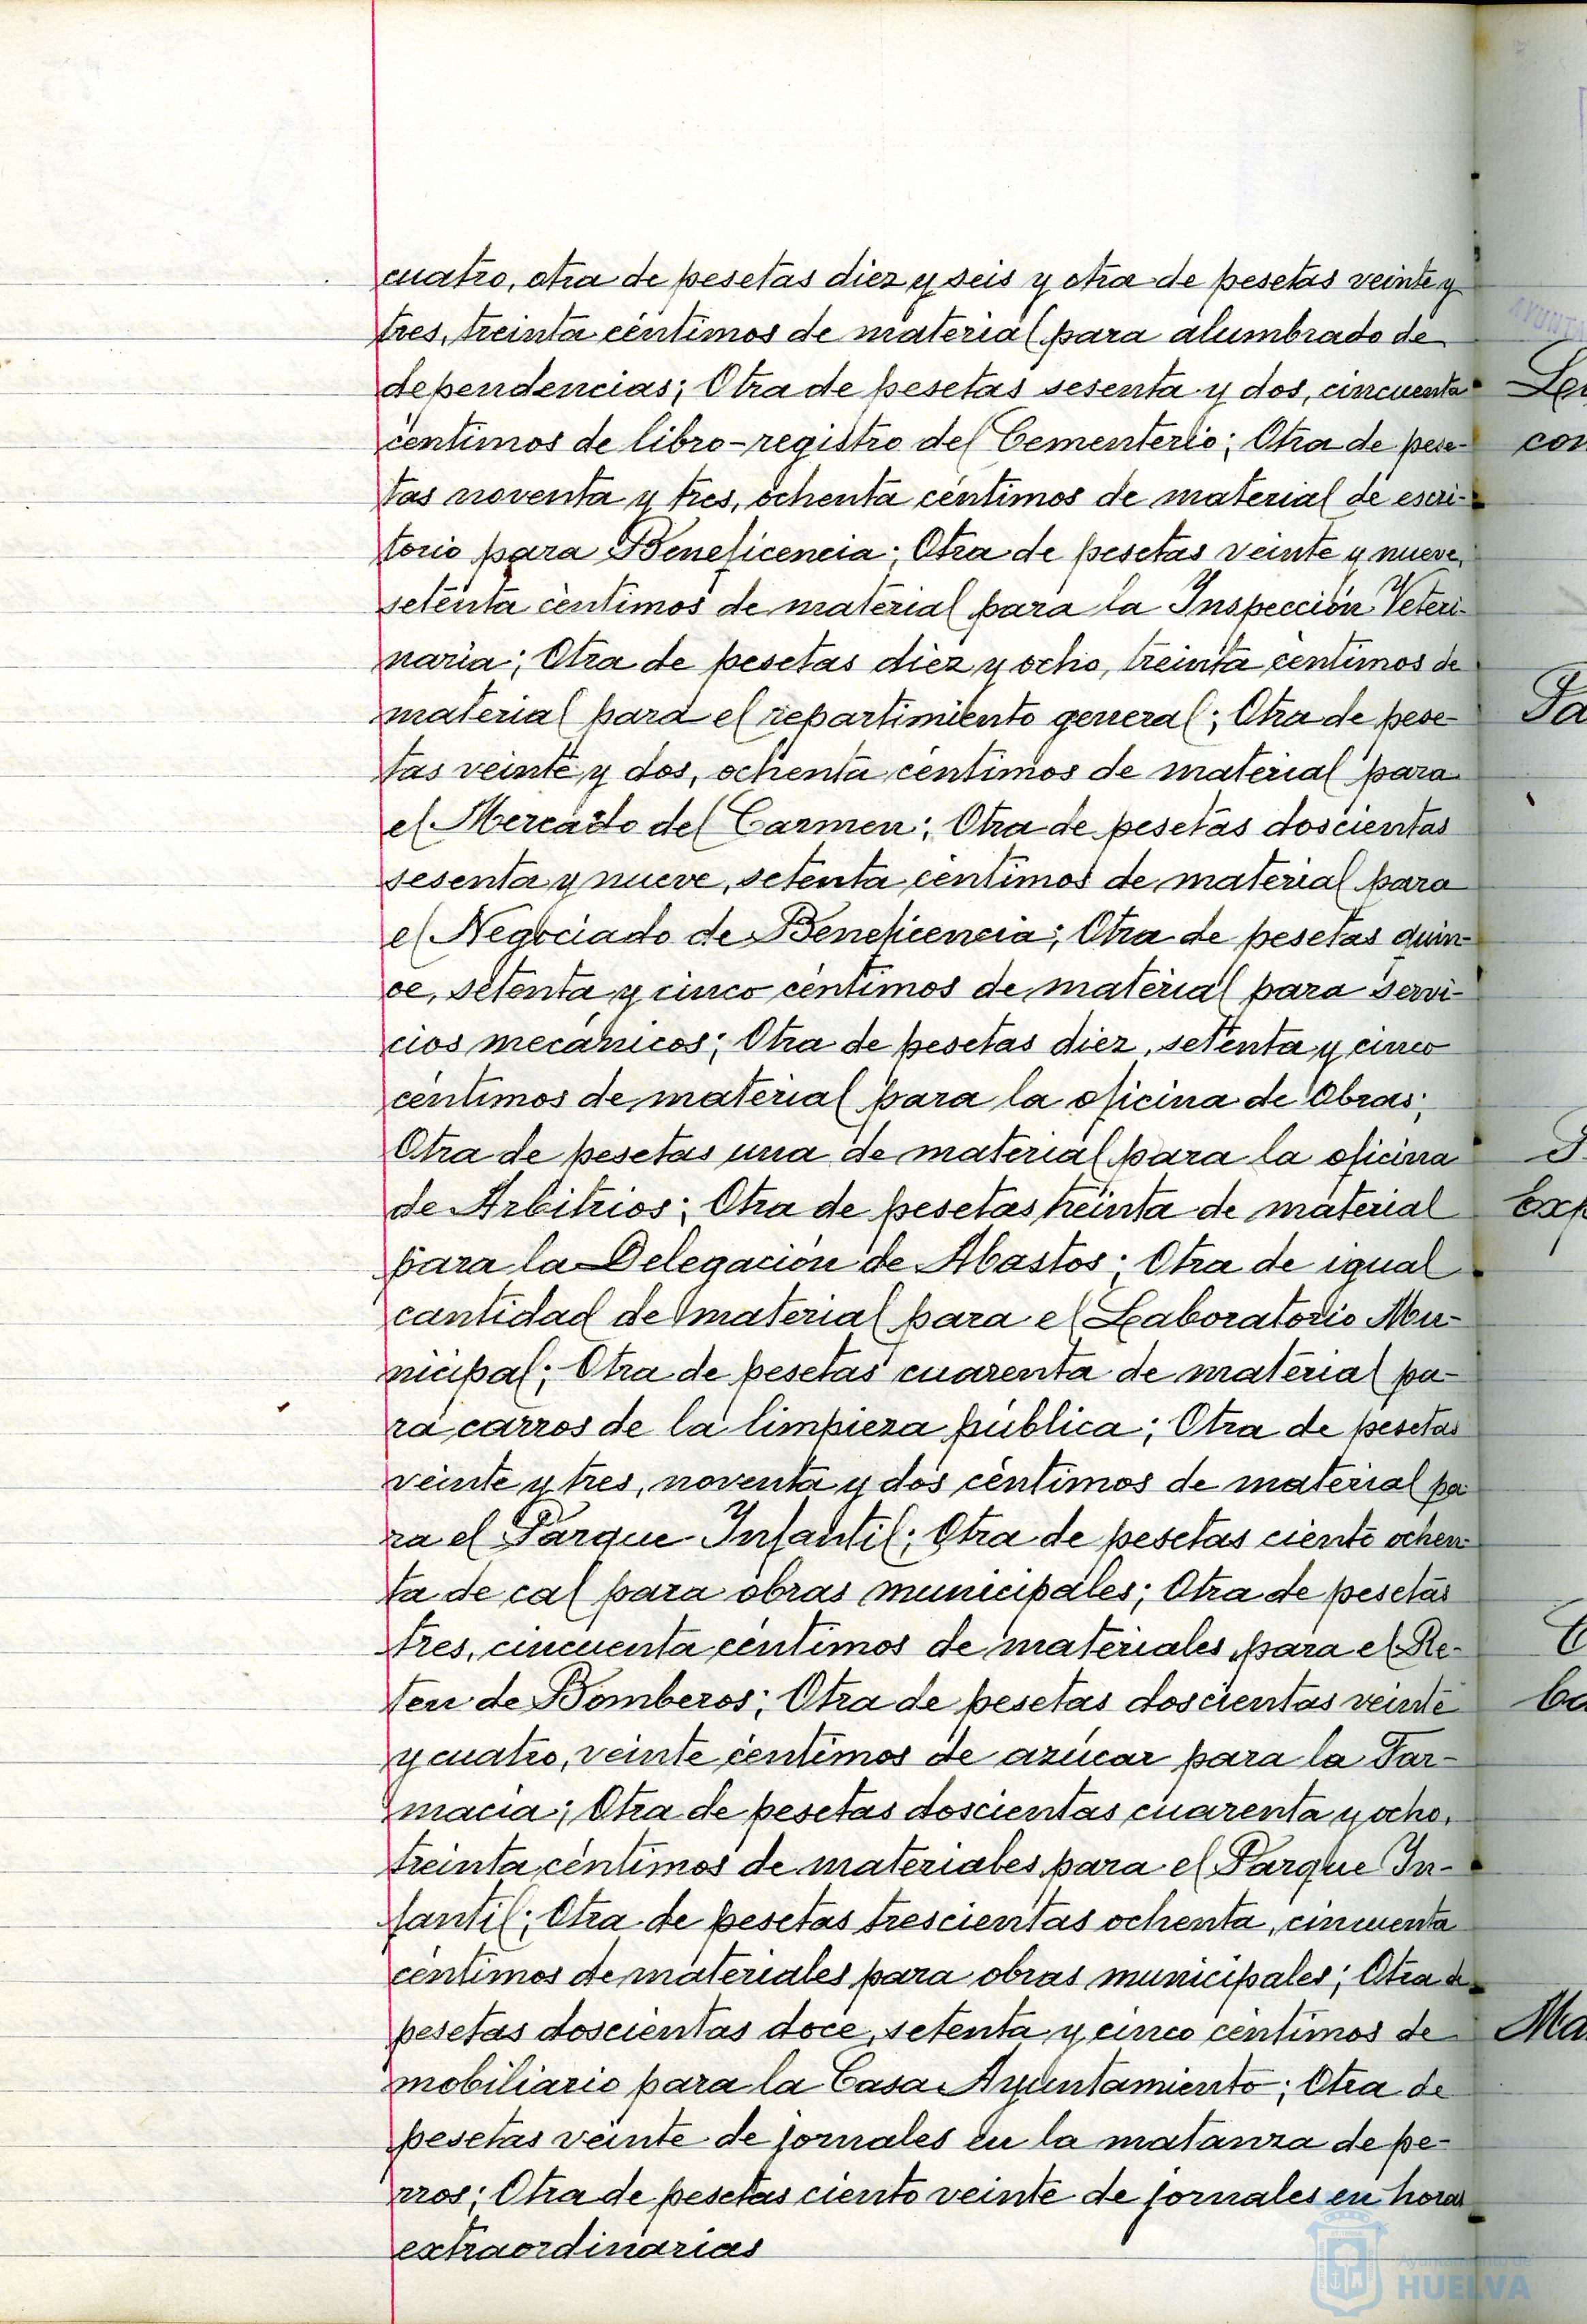 cuatro, otra de pesetas diez y seis y otra de pesetas veinte y
tres, treinta céntimos de material para alumbrado de
dependencias; Otra de pesetas sesenta y dos, cincuenta
céntimos de libro-registro del Cementerio; Otra de pese-
tas noventa y tres, ochenta céntimos de material de escri-
torio para Beneficencia; Otra de pesetas veinte y nueve,
setenta céntimos de material para la Inspección Veteri-
naria; Otra de pesetas diez y ocho, treinta céntimos de
material para el repartimiento general; Otra de pese-
tas veinte y dos, ochenta céntimos de material para
el Mercado del Carmen; Otra de pesetas doscientas
sesenta y nueve, setenta céntimos de material para
el Negociado de Beneficencia; Otra de pesetas quin-
ce, setenta y cinco céntimos de material para servi-
cios mecánicos; Otra de pesetas diez, setenta y cinco
céntimos de material para la oficina de Obras;
Otra de pesetas una de material para la oficina
de Arbitrios; Otra de pesetas treinta de material
para la Delegación de Abastos; Otra de igual
cantidad de material para el Laboratorio Mu-
nicipal; Otra de pesetas cuarenta de material pa-
ra carros de la limpieza pública; Otra de pesetas
veinte y tres, noventa y dos céntimos de material pa
ra el Parque Infantil; Otra de pesetas ciento ochen
ta de cal para obras municipales; Otra de pesetas
tres, cincuenta céntimos de materiales para el Re-
ten de Bomberos; Otra de pesetas doscientas veinte
y cuatro, veinte céntimos de azúcar para la Far-
macia; Otra de pesetas doscientas cuarenta y ocho,
treinta céntimos de materiales para el Parque In-
fantil; Otra de pesetas trescientas ochenta, cincuenta
céntimos de materiales para obras municipales; Otra de
pesetas doscientas doce, setenta y cinco céntimos de
mobiliario para la Casa Ayuntamiento; Otra de
pesetas veinte de jornales en la matanza de pe-
rros; Otra de pesetas ciento veinte de jornales en horas
extraordinarias
HUELVA